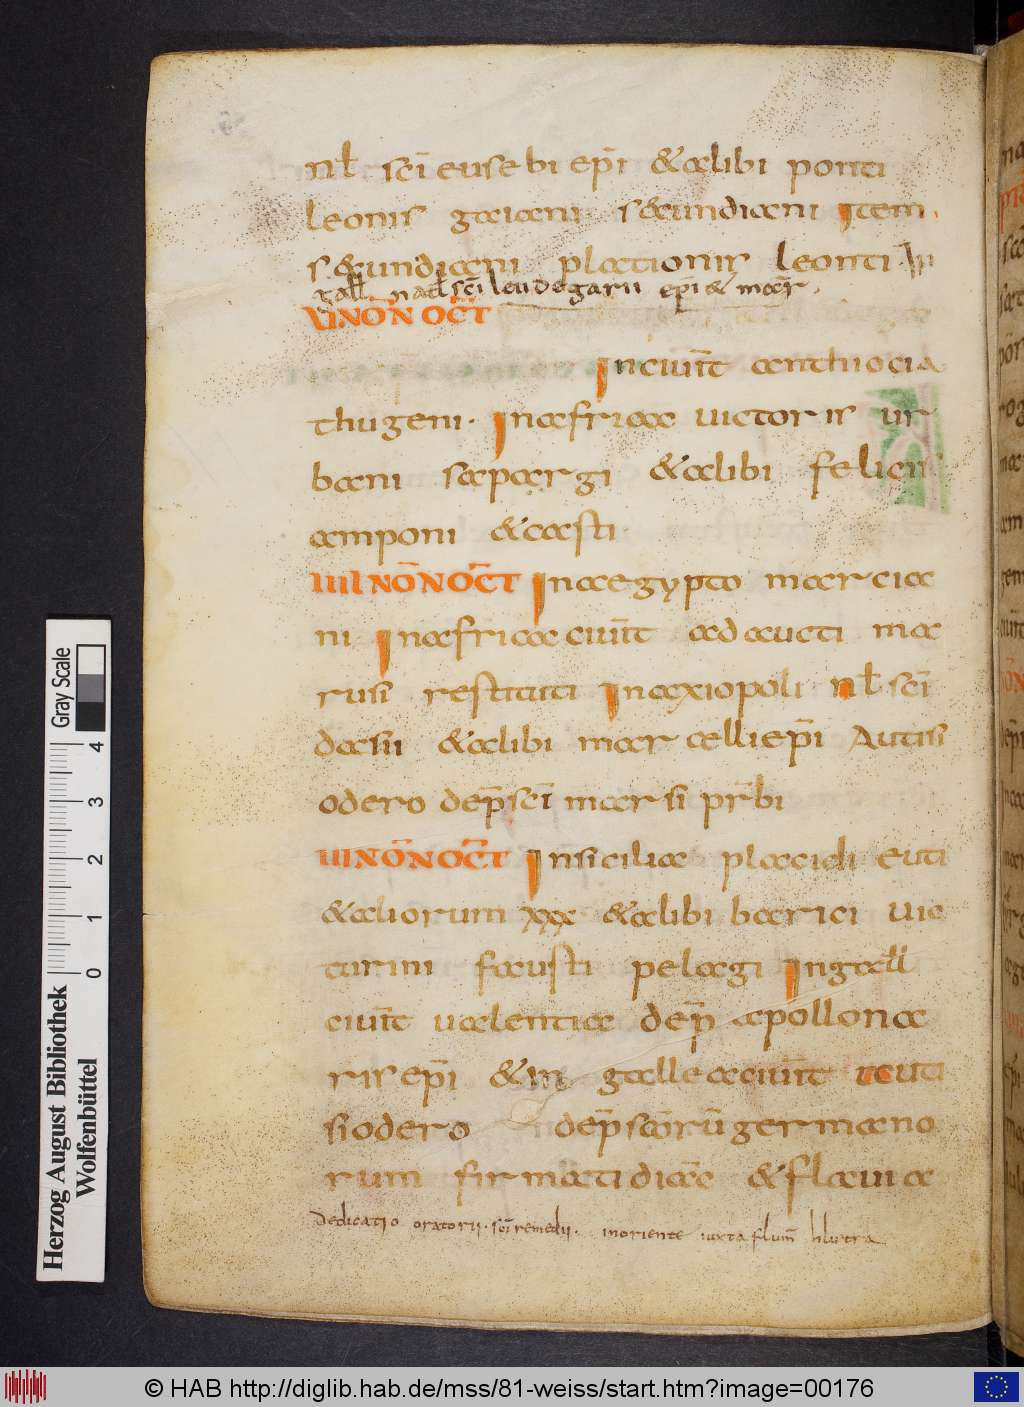 nt̄ sc̄i eusebi ep̄i & alibi ponti
leonis gaiani s&undiani Item
s&undiani plationis leonti In
gall nat sc̄i leudegarii ep̄i & mar̄
VI NŌN OC̄T
In ciuit̄ anthiocia
thugeni. In africa uictoris ur
bani sapargi & alibi felicis
amponi & casti
IIII NŌN OC̄T In aegypto marcia
ni In africa ciuit̄ adaucti ma
rusi restituti In axiopoli nt̄ sc̄i
dasii & alibi marcelli ep̄i Autisi
odero dep̄ sc̄i marsi pr̄bi
III NŌN OC̄T In sicilia placidi euti
& aliorum xxx & alibi barici uic
turini fausti pelagi In gall
ciuit̄ ualentia dep̄ apollona
ris ep̄i & in galleaciuit̄ auti
siodero dep̄ scōrū germano
rum firmati diac̄ & flauia
Dedicatio oratorii. sc̄i remedii. in oriente iuxta flum̄
Herzog August Bibliothek
Wolfenbüttel
Gray Scale
0 1 2 3 4
© HAB http://diglib.hab.de/mss/81-weiss/start.htm?image=00176